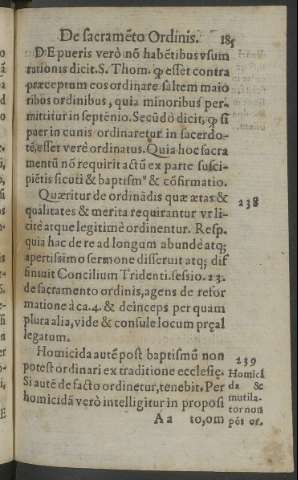 De sacramẽto Ordinis. 185
DE pueris verò nõ habẽtibus vsum
rationis dicit.S. Thom. ꝙ esset contra
præceptum eos ordinare saltem maio
ribus ordinibus, quia minoribus per-
mittitur in septẽnio. Secũdò dicit, ꝙ si
puer in cunis ordinaretur in sacerdo-
tẽ, esset verè ordinatus. Quia hoc sacra
mentũ nõ requirit actũ ex parte susci-
piẽtis sicuti & baptismꝰ & cõfirmatio.
Quæritur de ordinãdis quæ ætas &
238
qualitates & merita requirantur vt li-
citè atque legitimè ordinentur. Resp.
quia hac de re ad longum abundè atq;
apertissimo sermone disseruit atq; dif
finiuit Concilium Tridenti. sessio. 23.
de sacramento ordinis, agens de refor
matione à ca. 4. & deinceps per quàm
plura alia, vide & consule locum præal
legatum.
Homicida autẽ post baptismũ non
239
potest ordinari ex traditione ecclesię.
Homici
Si autẽ de facto ordinetur, tenebit. Per
da &
homicidã verò intelligitur in proposi
mutila-
tor non
Aa to, om
põt or.